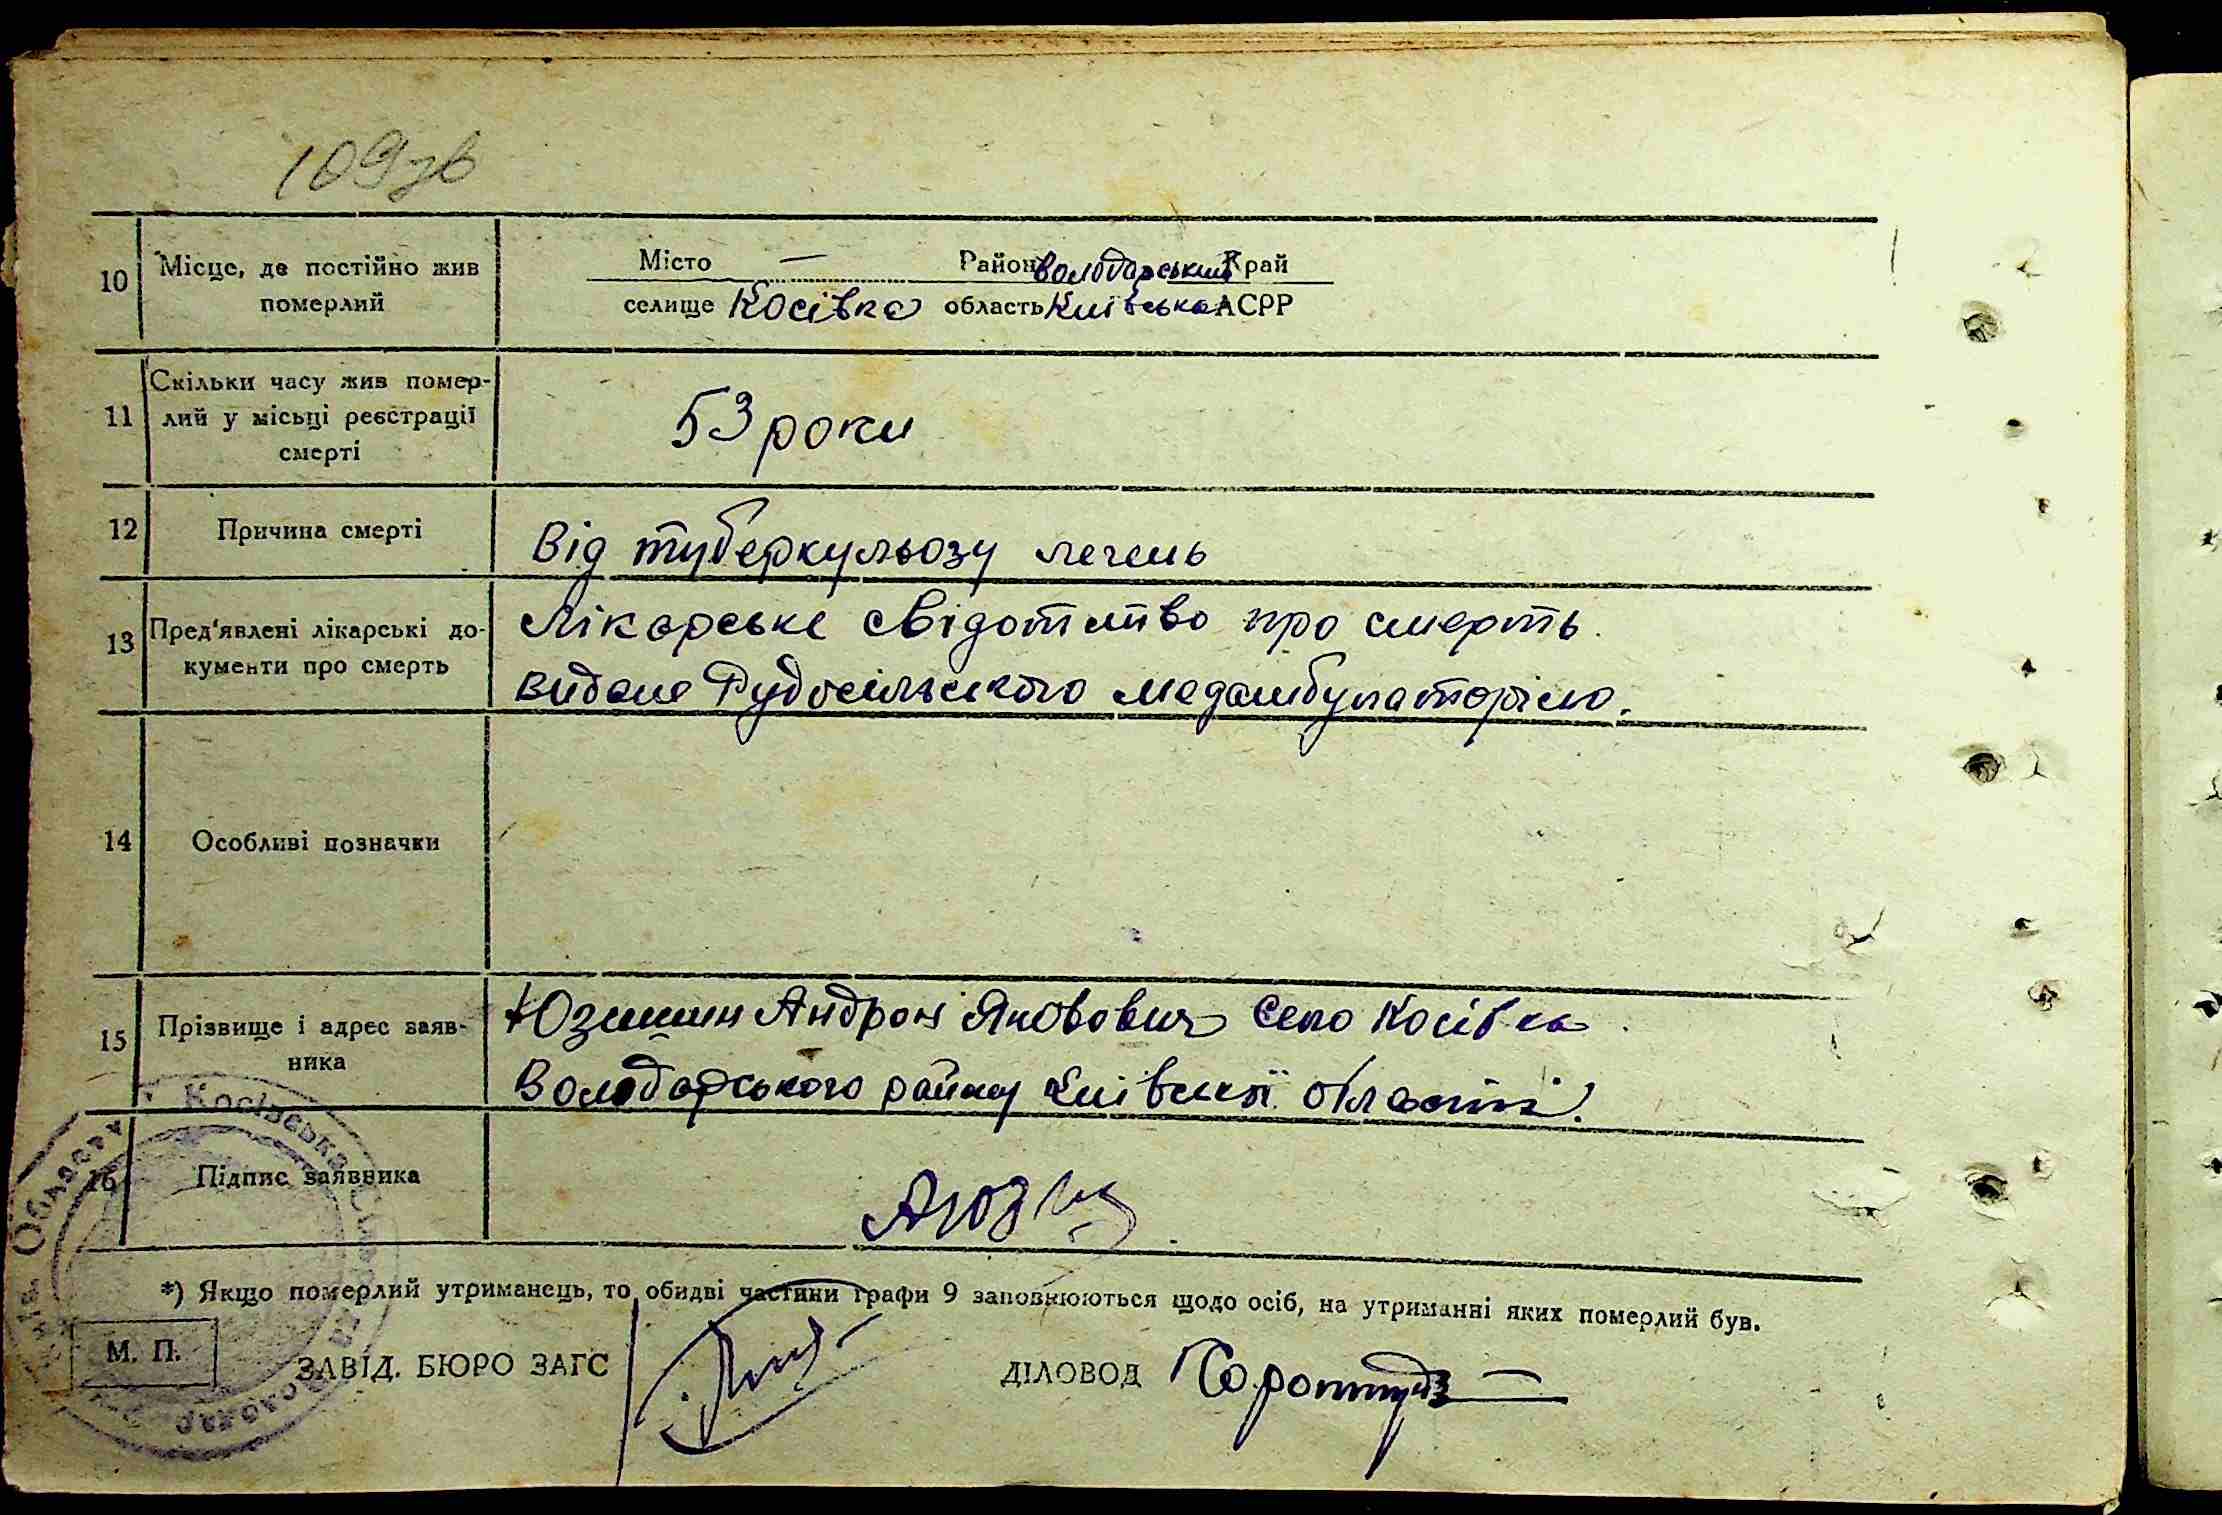 109зв
10 Місце, де постійно жив померлий
Місто — Район Володарський Край
селище Косівка область Київська АСРР
11 Скільки часу жив помер-
лий у місьці реєстрації
смерті
53 роки
12 Причина смерті
Від туберкульозу легень
13 Пред'явлені лікарські до-
кументи про смерть
Лікарське свідотство про смерть
видане Рудосільського медамбулаторією.
14 Особливі позначки
15 Прізвище і адрес заяв-
ника
Юзишин Андрон Якович село Косівка
Володарського району Київської області.
16 Підпис заявника
АЮз
*) Якщо померлий утриманець, то обидві частини графи 9 заповнюються щодо осіб, на утриманні яких померлий був.
М. П. ЗАВІД. БЮРО ЗАГС ДІЛОВОД
Косівська